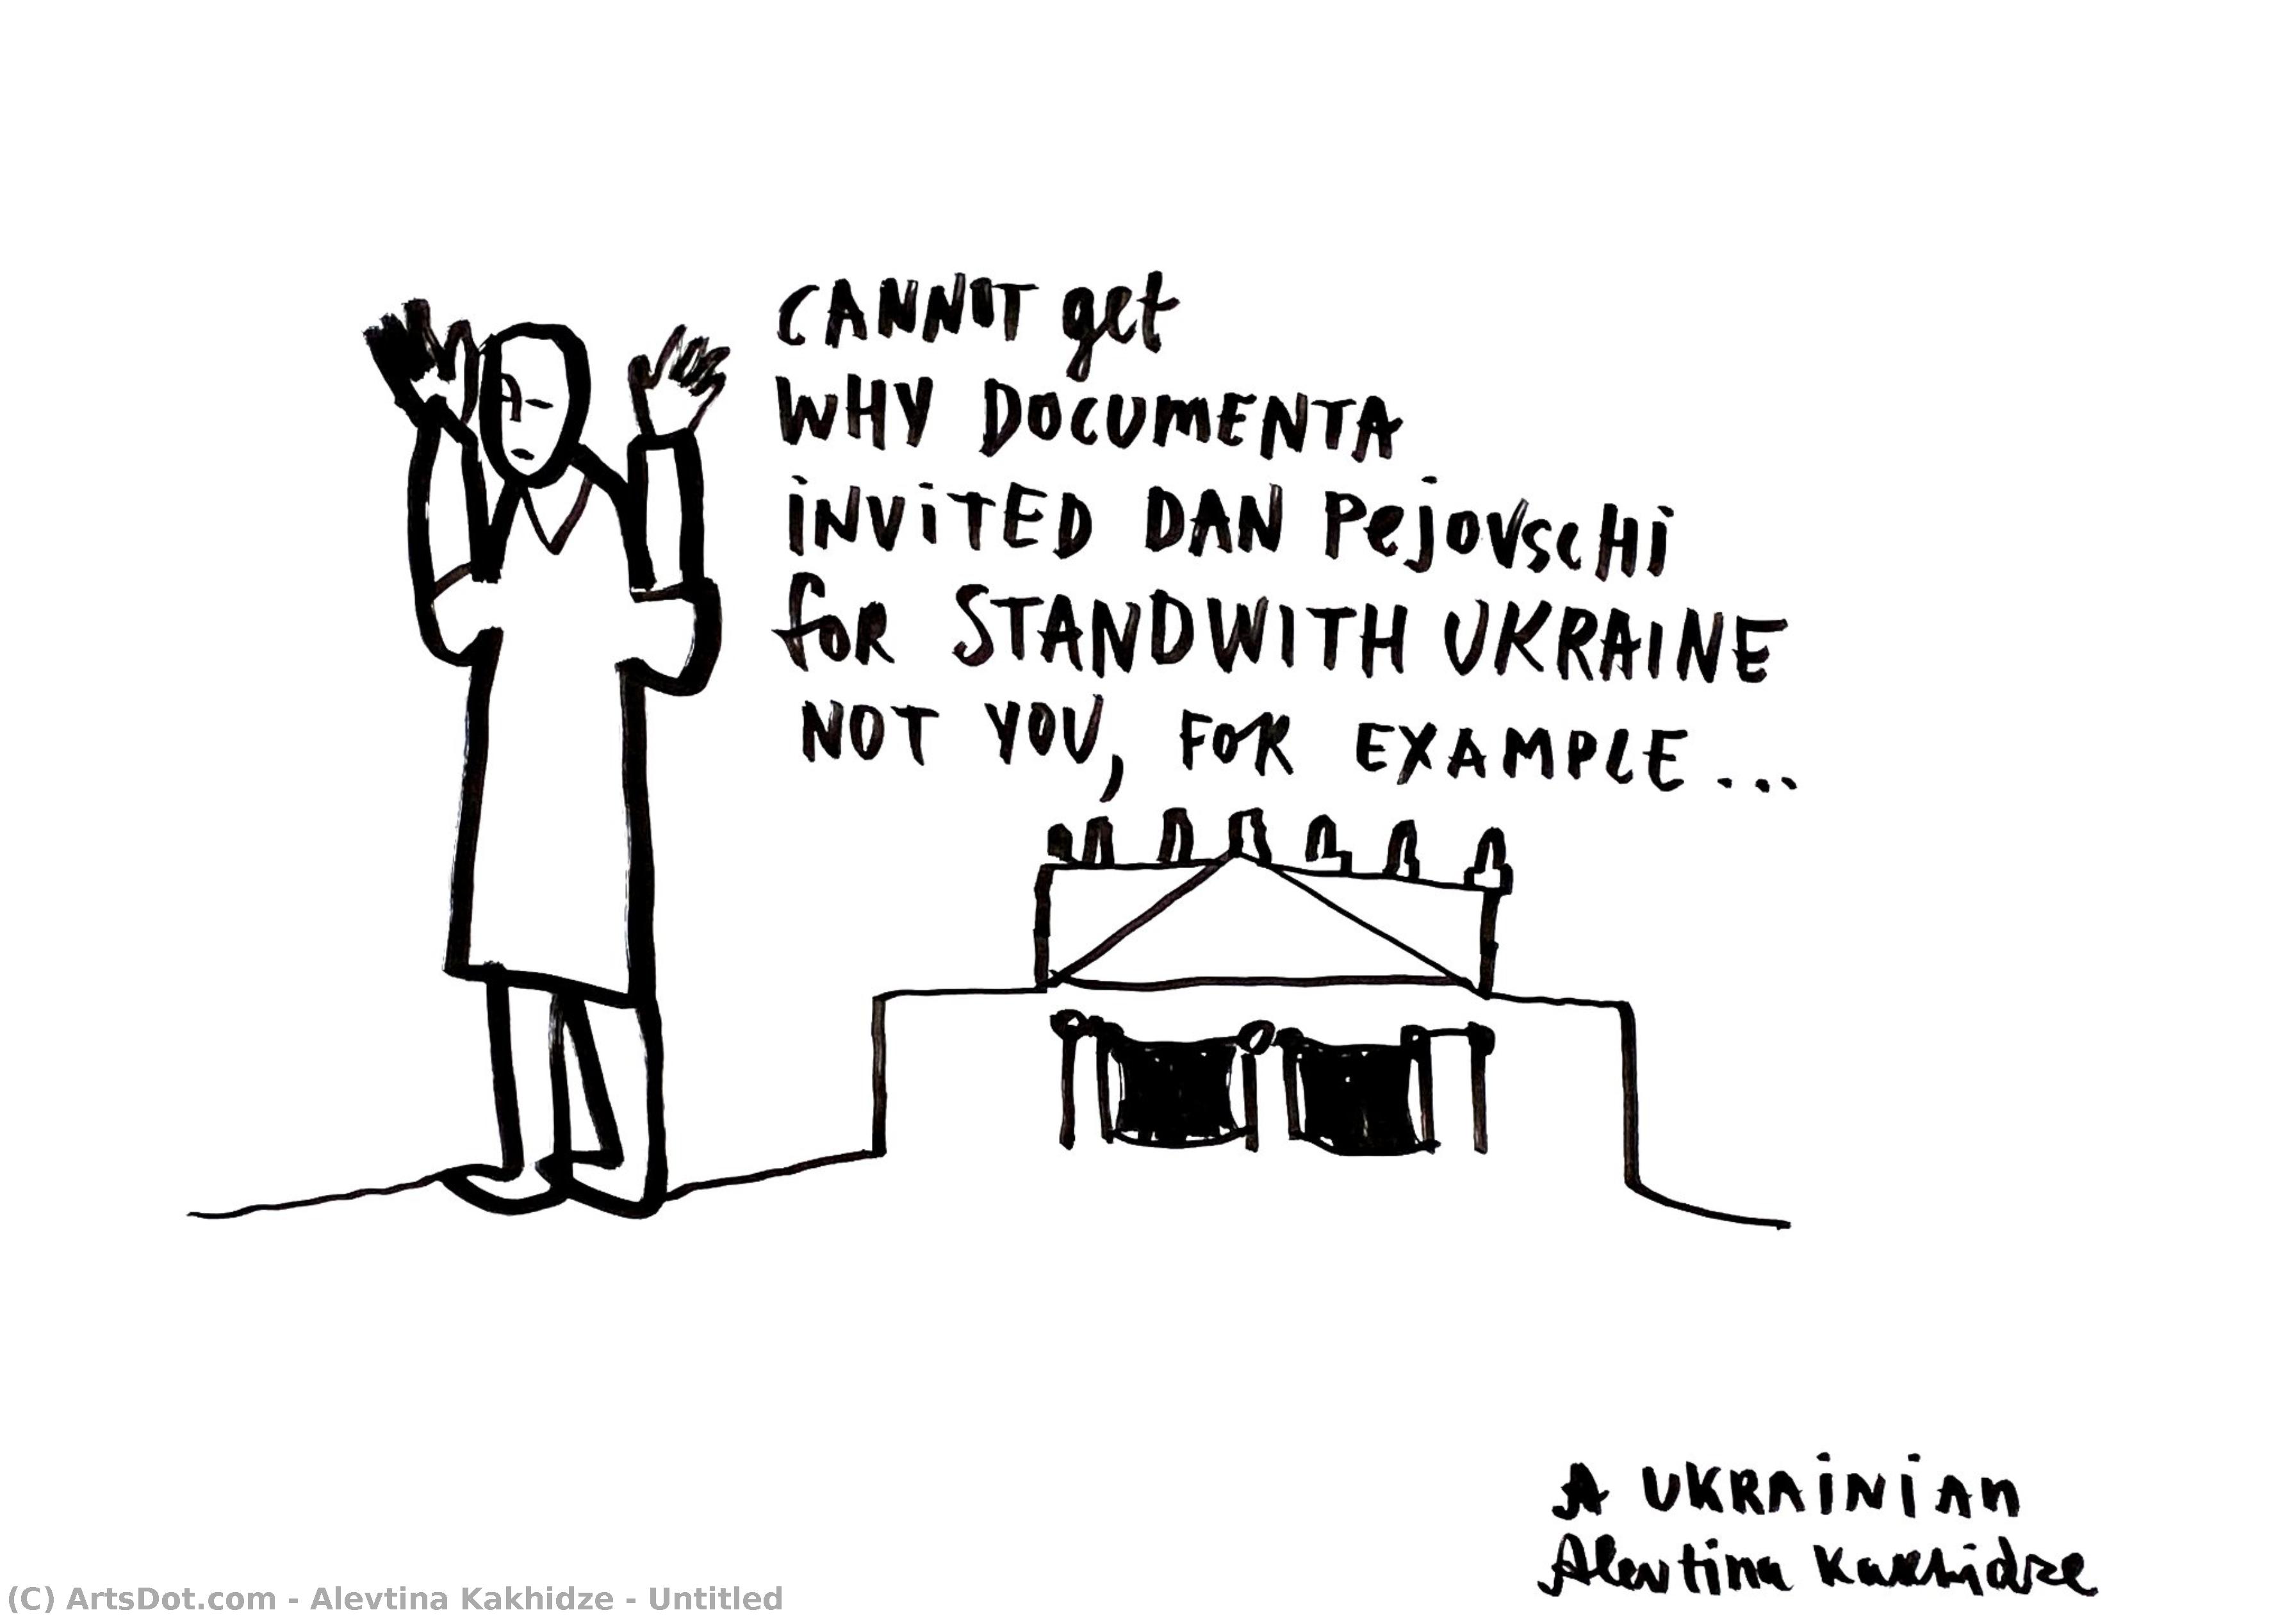 CANNOT get
WHY DOCUMENTA
iNViTED DAN Pejovschi
for STANDWITH UKRAINE
NOT YOU, FOR EXAMPLE...
A UKRAiNiAN
Alevtina Kakhidze
(C) ArtsDot.com - Alevtina Kakhidze - Untitled